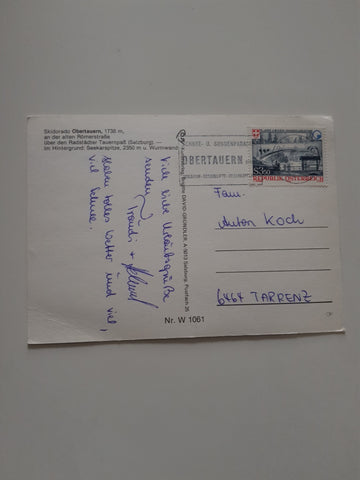 Skidorado Obertauern, 1738 m,
an der alten Römerstraße
über den Radstädter Tauernpaß (Salzburg). —
Im Hintergrund: Seekarspitze, 2350 m u. Wurmwand
Viele liebe Urlaubsgrüße
senden
Traudi +
Haben tolles Wetter und viel,
viel Schnee.
DAVID GRÜNDLER, A-5013 Salzburg, Postfach 25
SCHNEE- U. SONNENPARADIES
OBERTAUERN
S 3.50
REPUBLIK ÖSTERREICH
Fam.
Anton Koch
6464 TARRENZ
Nr. W 1061